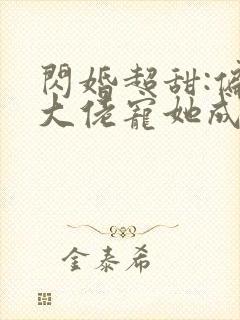 閃婚超甜:偏
大佬寵她成
金泰希